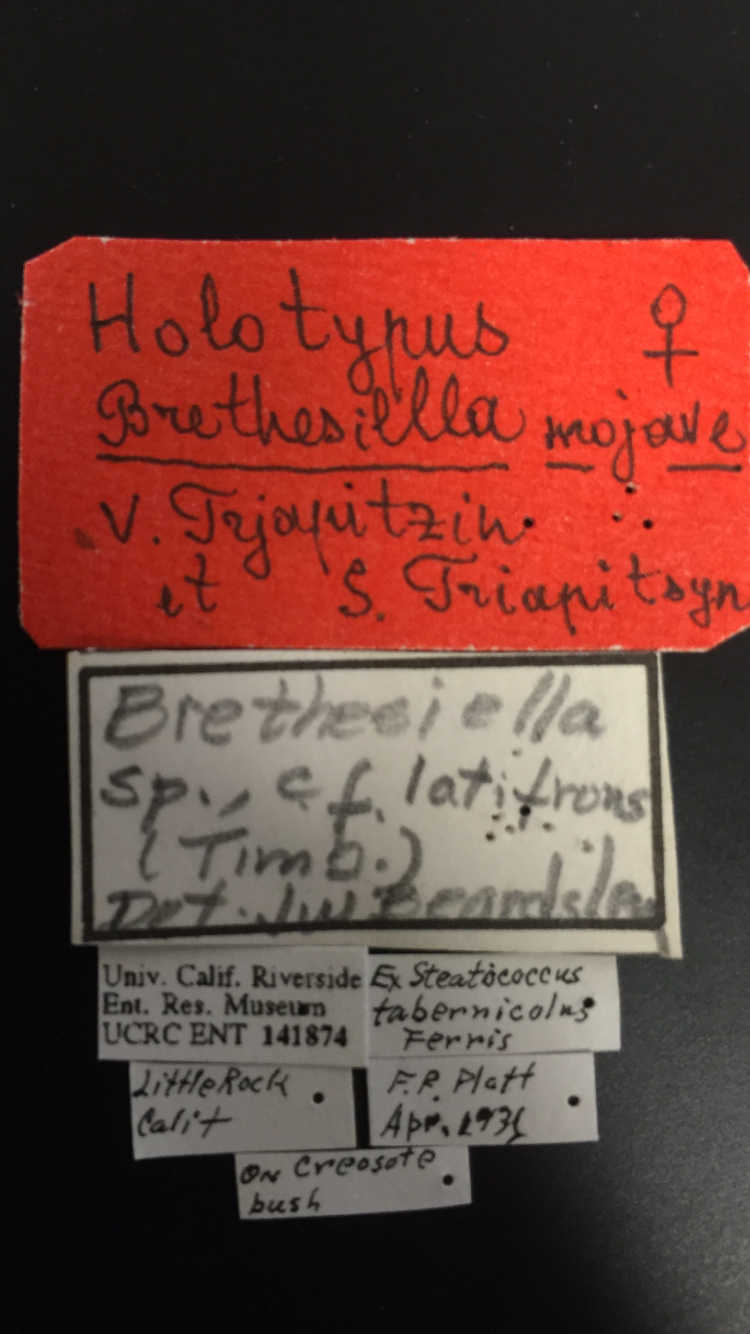 Holotypus ♀
Brethesiella mojave
V. Trjapitzin
et S. Triapitsyn
Brethesiella
sp., cf. latifrons
(Timb.)
Det. JW Beardsley
Univ. Calif. Riverside
Ent. Res. Museum
UCRC ENT 141874
Ex Steatococcus
tabernicolus
Ferris
LittleRock
Calif
F.R. Platt
Apr.
On Creosote
bush